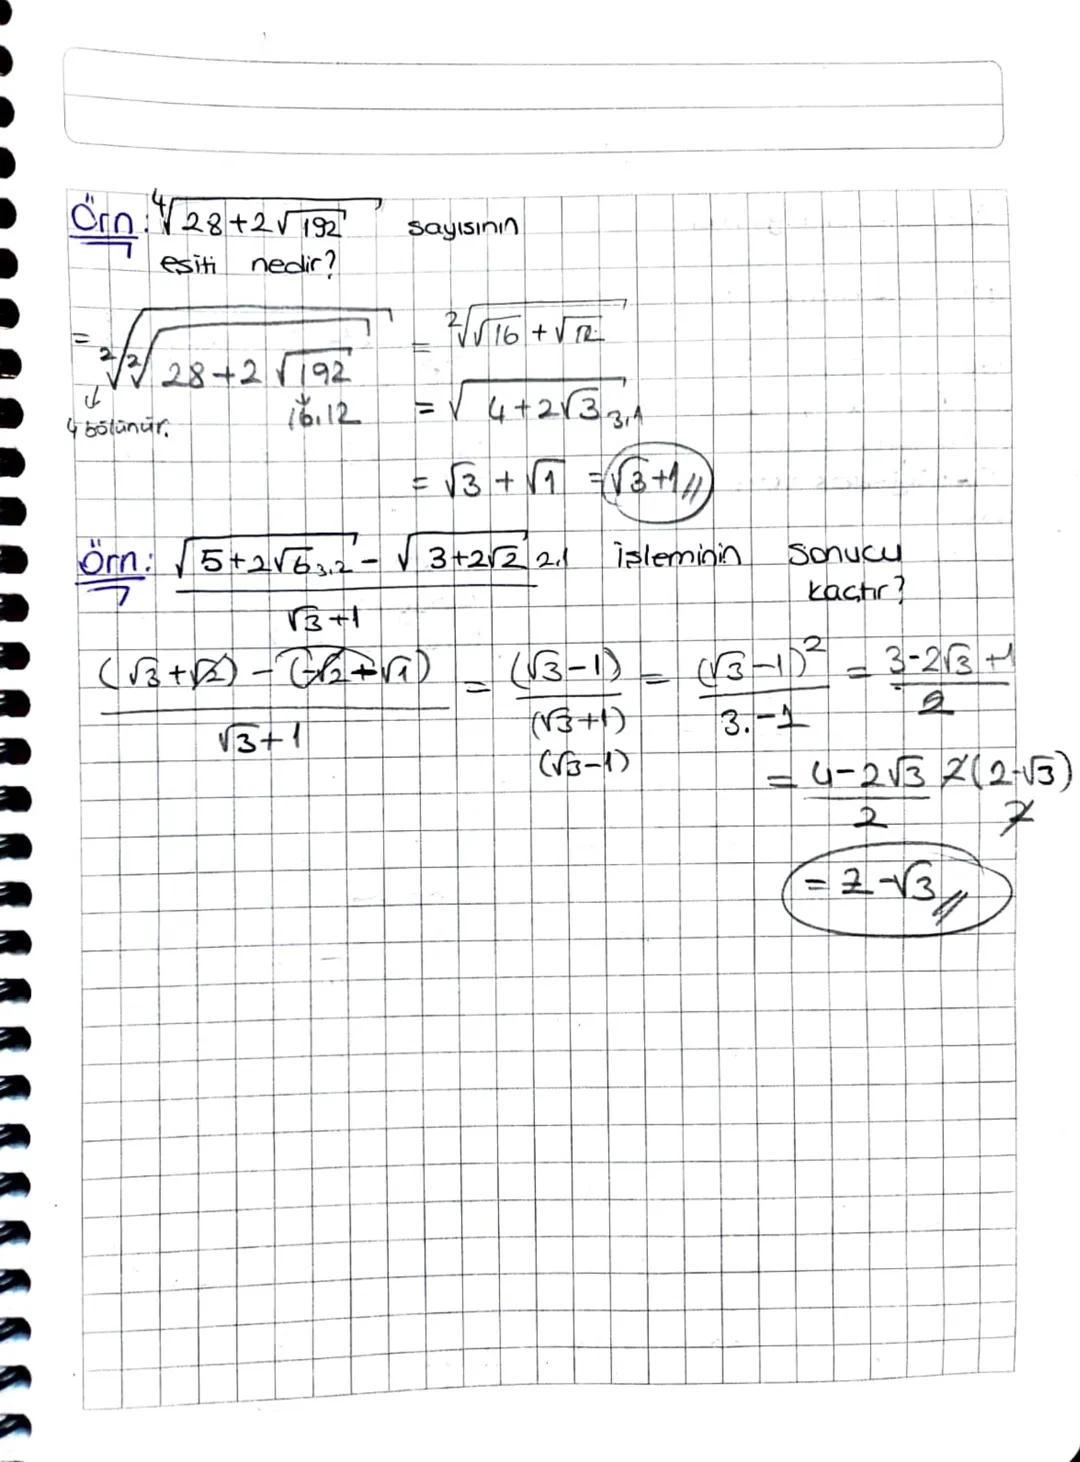 Örn: ⁴√(28+2√192) sayısının
eşiti nedir?
= ²√(²√(28+2√192)) = ²√(√16+√12)
16.12
4 bölünür.
= √(4+2√3) 3,1
= √3+√1 = √3+1//
Örn: (√(5+2√6) 3,2 - √(3+2√2) 2,1) / (√3+1) işleminin sonucu
kaçtır?
((√3+√2) - (√2+√1)) / (√3+1) = (√3-1) / (√3+1) = (√3-1)² / 3.-1 = (3-2√3+1) / 2
(√3-1)
= (4-2√3) / 2 2(2-√3) / 2
= 2-√3//